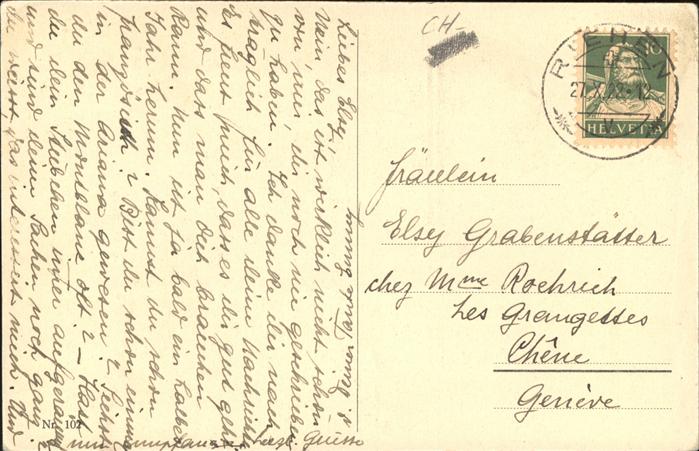 CH-
10
RIEHEN
27.X.22.-12
HELVETIA
Fräulein
Elsy Grabenstätter
chez Mme Roehrich
Les Grangettes
Chêne
Genève
Liebes Elsy
Nein das ist wirklich nicht schön
von mir, dir noch nie geschrieben
zu haben. Ich danke dir nach-
träglich für alle deine Nachrichten
Es freut mich, dass es dir gut geht
und dass man dich brauchen
kann. Nun ist ja bald ein halbes
Jahr herum. Kannst du schon
französisch? Bist du schon einmal
in der Ariana gewesen? Siehst
du den Montblanc oft? – Hast
du dein Stübchen immer aufgeräumt
und sind deine Sachen noch ganz.
du weisst das interessiert mich. Und
nun empfange herzl. Grüsse
Nr. 102